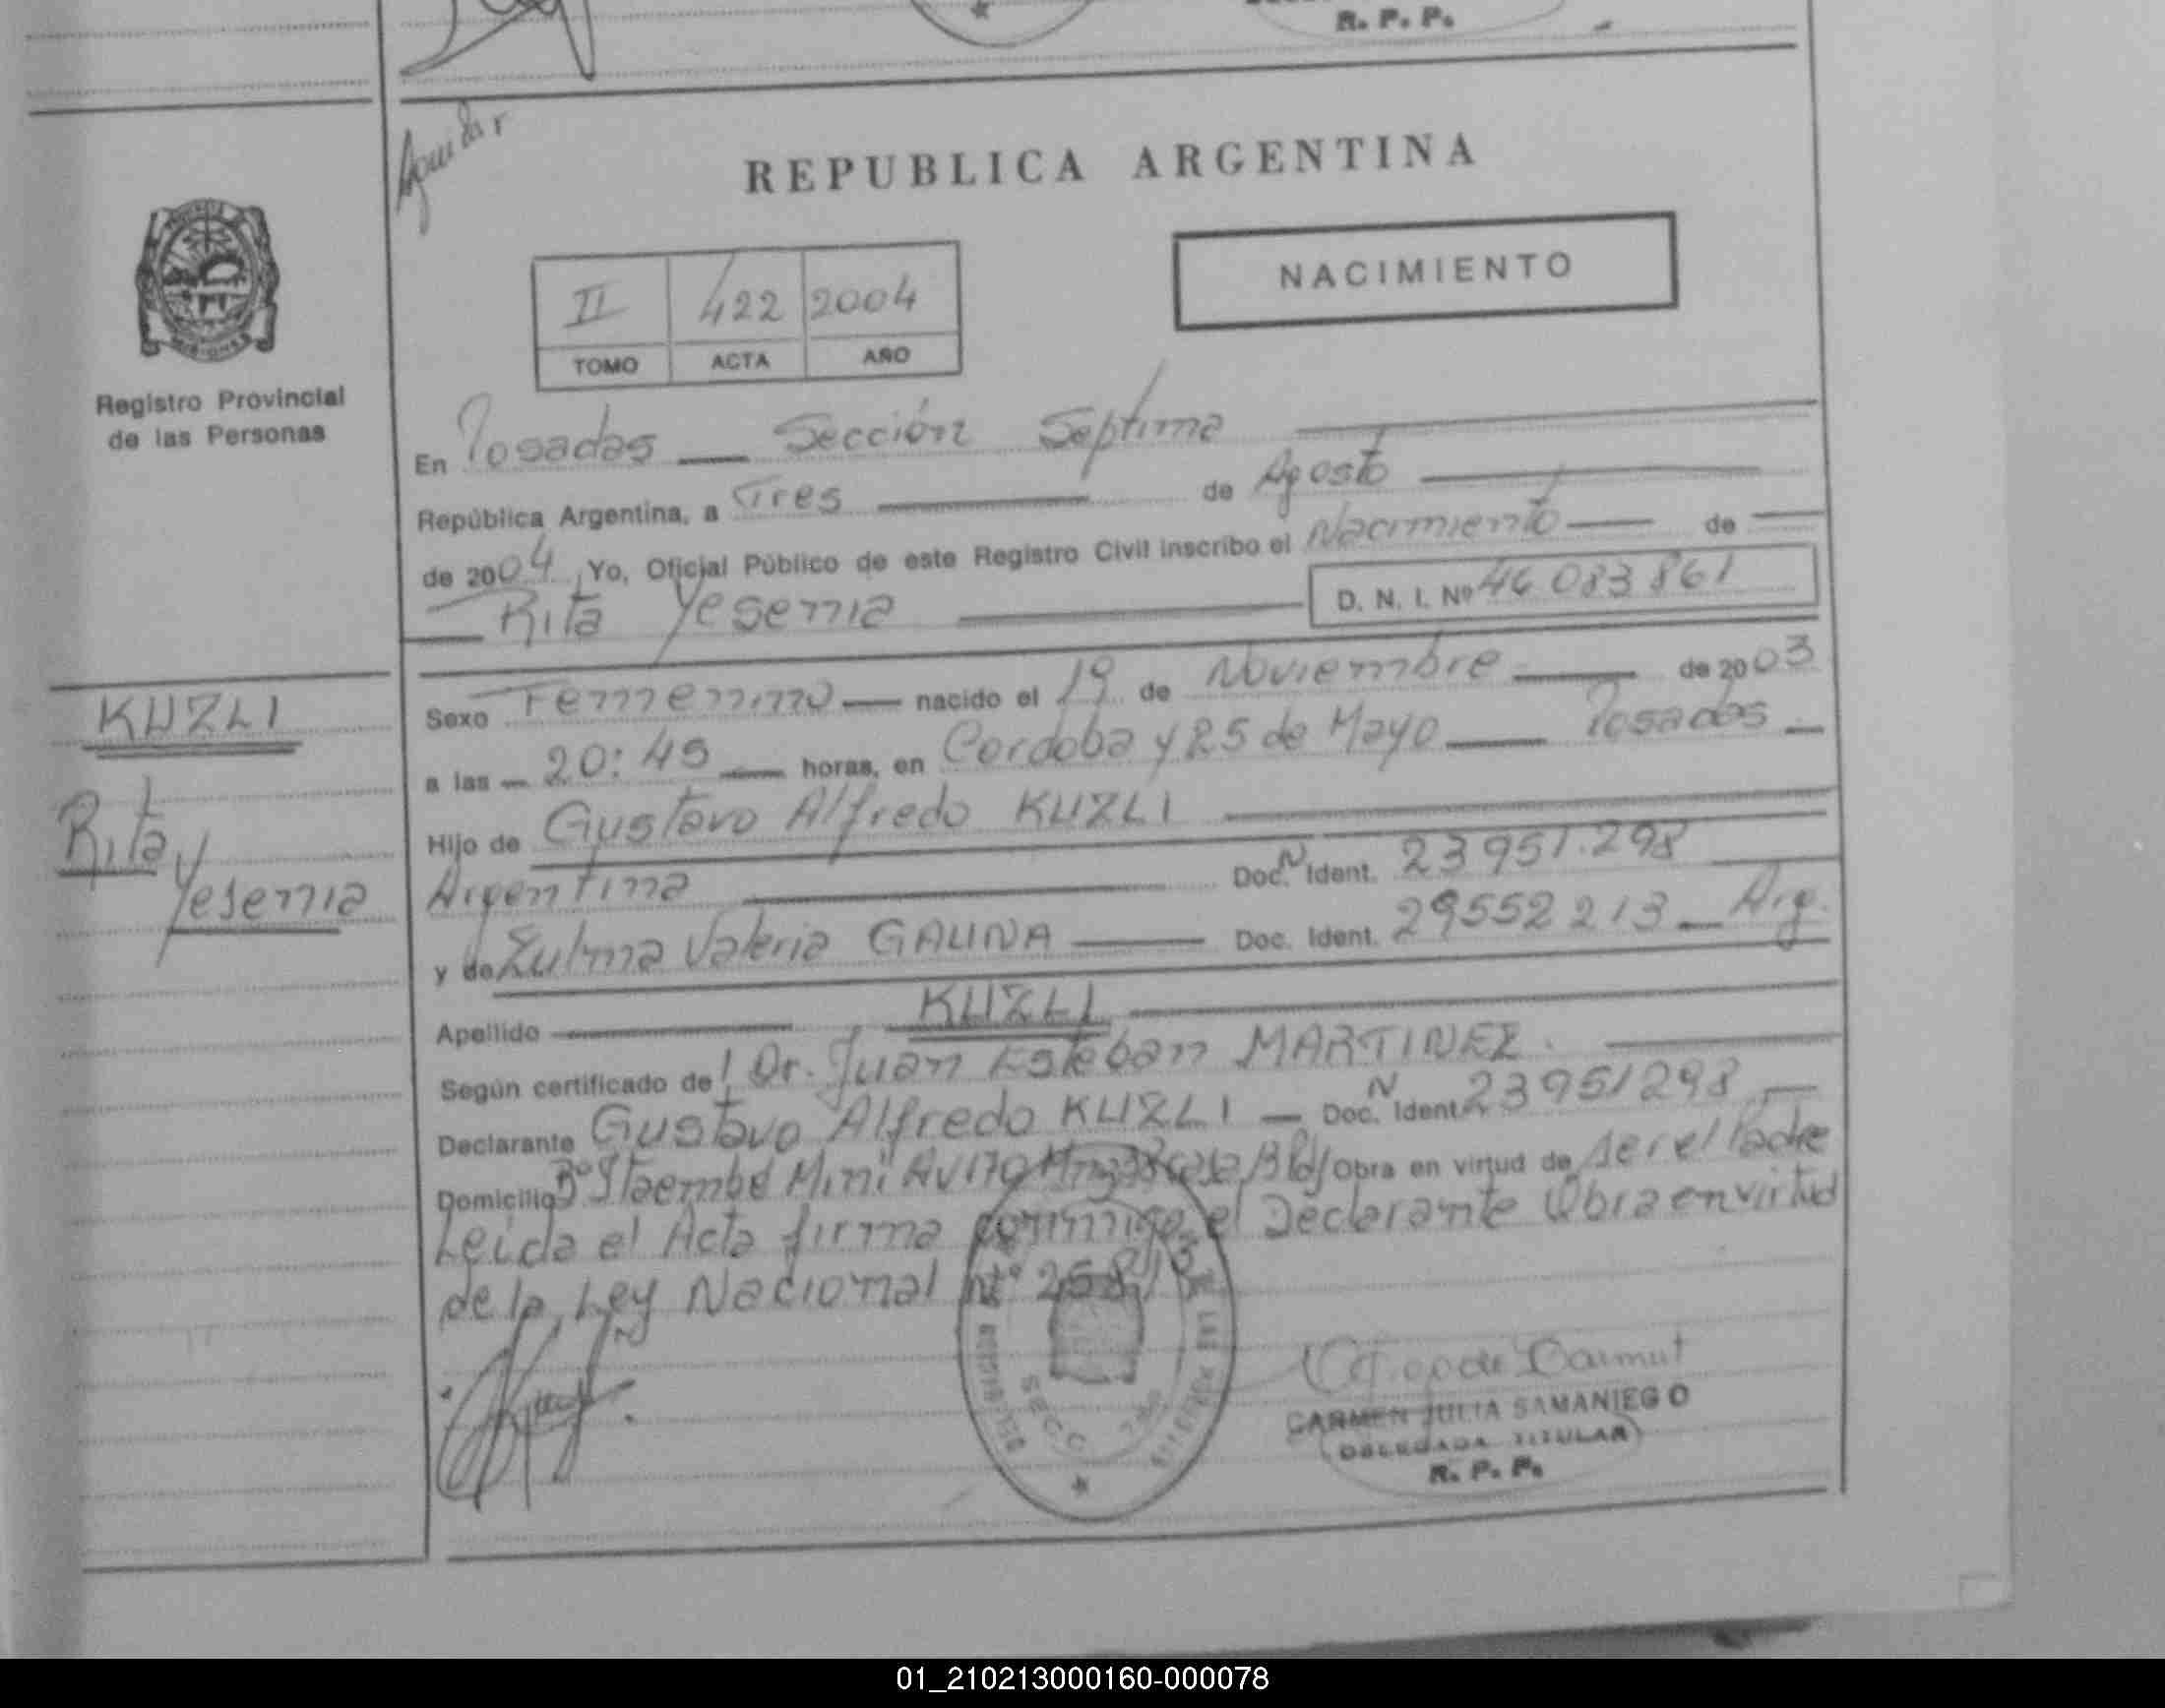 R. P. P.
REPUBLICA ARGENTINA
NACIMIENTO
II 422 2004
TOMO ACTA AÑO
MISIONES
Registro Provincial
de las Personas
En Posadas — Sección Septima
República Argentina, a Tres de Agosto
de 2004, Yo, Oficial Público de este Registro Civil inscribo el Nacimiento — de
Rita Yesenia D. N. I. Nº 46 083 861
KUZLI
Rita
Yesenia
Sexo Femenino — nacido el 19 de Noviembre — de 2003
a las — 20:45 — horas, en Cordoba y 25 de Mayo — Posadas —
Hijo de Gustavo Alfredo KUZLI
Argentina Doc. N Ident. 23 951.298
y de Zulma Valeria GAUNA — Doc. Ident. 29552 213 — Arg.
Apellido — KUZLI
Según certificado del Dr. Juan Esteban MARTINEZ.
Declarante Gustavo Alfredo KUZLI — Doc. N Ident. 23951298 —
Domicilio Bº Itaembé Mini Av 170 Obra en virtud de ser el Padre
Leida el Acta firma conmigo el Declarante Obra en virtud
de la Ley Nacional Nº 25813
SECC
CARMEN JULIA SAMANIEGO
DELEGADA TITULAR
R. P. P.
01_210213000160-000078